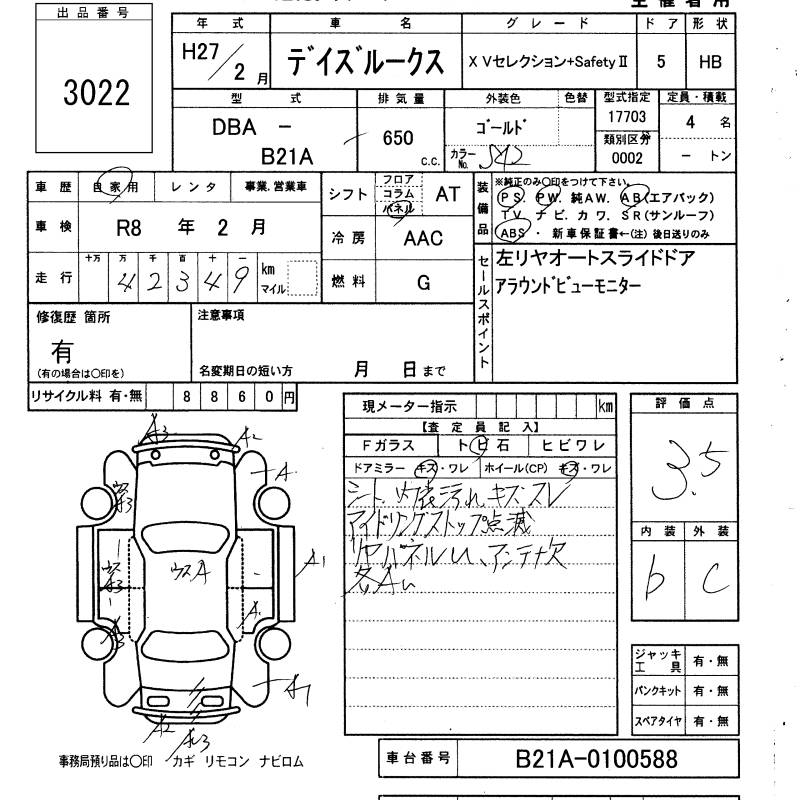 出品番号
3022
年式
H27/2月
車名
デイズルークス
グレード
XVセレクション+SafetyⅡ
ドア
5
形状
HB
型式
DBA -
B21A
排気量
650
C.C.
外装色
ゴールド
色替
カラーNo.
型式指定
17703
類別区分
0002
定員・積載
4 名
- トン
車歴
自家用
レンタ
事業.営業車
車検
R8 年 2 月
走行
十万 万 千 百 十 一
42349
km
マイル
シフト
フロア
コラム
パネル
AT
冷房
AAC
燃料
G
装備品
※純正のみ〇印をつけて下さい。
PS. PW. 純AW. AB(エアバック)
TV. ナビ. カワ. SR(サンルーフ)
ABS ・ 新車保証書←(注) 後日送りのみ
セールスポイント
左リヤオートスライドドア
アラウンドビューモニター
修復歴 箇所
有
(有の場合は〇印を)
注意事項
名変期日の短い方 月 日まで
リサイクル料 有・無 8860円
現メーター指示 km
【査定員記入】
Fガラス
トビ石
ヒビワレ
ドアミラー キズ・ワレ
ホイール(CP) キズ・ワレ
シート、内装汚れ キズ・スレ
アイドリングストップ点滅
リヤパネルU、アンテナ欠
各A
評価点
3.5
内装
b
外装
C
A3
A2
A
ウス
A3
ウスA
A1
ウス
A3
A
A3
A1
A2
A3
ジャッキ
工具
有・無
パンクキット
有・無
スペアタイヤ
有・無
事務局預り品は〇印 カギ リモコン ナビロム
車台番号
B21A-0100588